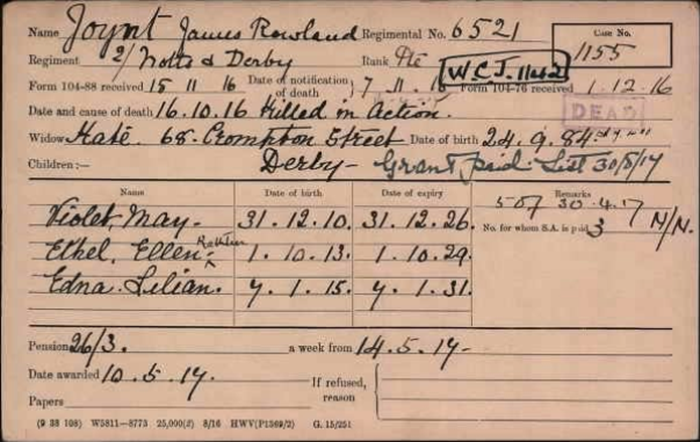 Name Joynt James Rowland Regimental No. 6521 Case No.
Regiment 2/ Notts & Derby Rank Pte W.C.J. 1155
Form 104-88 received 15 11 16 Date of notification of death 7.11.16 Form 104-76 received 1.12.16
Date and cause of death 16.10.16 Killed in Action. DEAD
Widow Kate. 68. Crompton Street Date of birth 24.9.84.
Children:— Derby - Grant paid. List 30/5/17
Name Date of birth Date of expiry Remarks
Violet May - 31.12.10. 31.12.26. 507 30.4.17
No. for whom S.A. is paid 3 N/N.
Ethel Ellen 1.10.13. 1.10.29.
Edna Lilian. 7.1.15. 7.1.31.
Pension 26/3. a week from 14.5.17-
Date awarded 10.5.17. If refused, reason
Papers
(9 38 108) W5811—8773 25,000(2) 8/16 HWV(P1569/2) G. 15/251